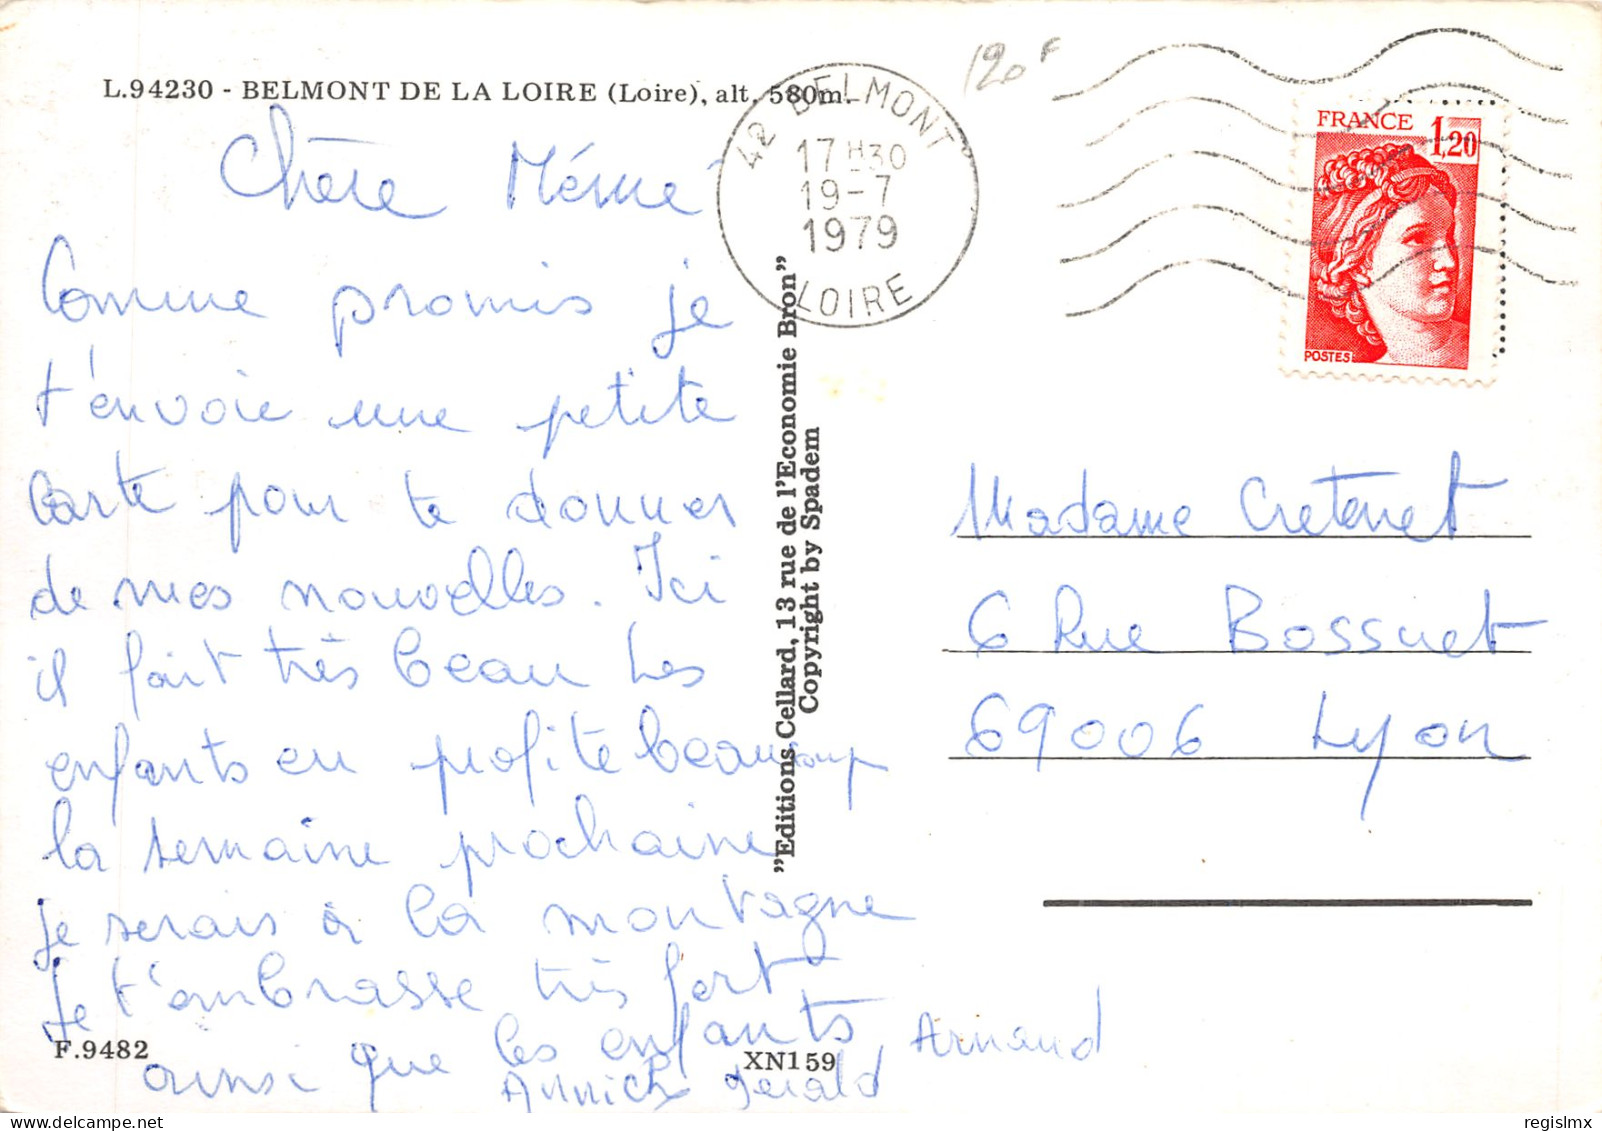 L.94230 - BELMONT DE LA LOIRE (Loire), alt. 580m.
120 F
42 BELMONT
17 H30
19-7
1979
LOIRE
FRANCE 1,20
POSTES
Chère Mémé
Comme promis je
t'envoie une petite
carte pour te donner
de mes nouvelles. Ici
il fait très beau Les
enfants en profite beaucoup
la semaine prochaine
je serais à la montagne
Je t'embrasse très fort
ainsi que les enfants
Annick Gérald, Arnaud
"Editions Cellard, 13 rue de l'Economie Bron"
Copyright by Spadem
Madame Cretenet
6 Rue Bossuet
69006 Lyon
F.9482
XN159
regislmx